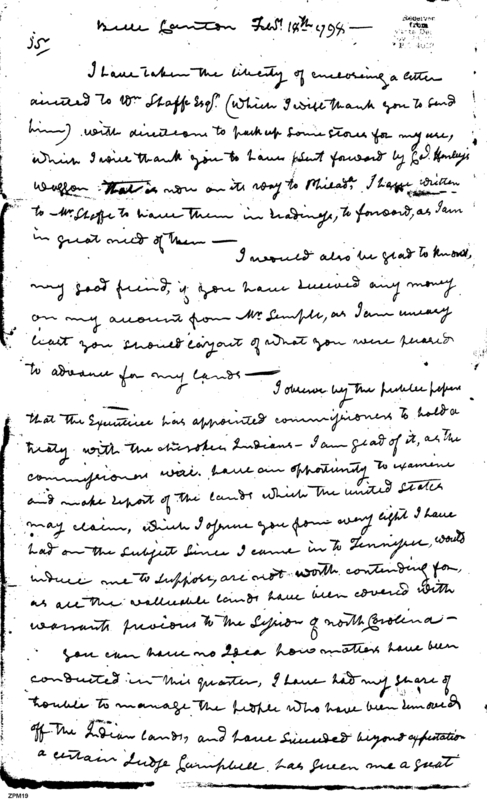 35
Belle Canton Feby. 14th 1798 —
Received
from
I have taken the liberty of enclosing a letter
directed to Wm Shaffe Esqr. (which I wish thank you to send
him) with directions to pack up some stores for my use,
which I will thank you to have sent forward by Cd. Henley's
Waggon that is now on its way to Philada. I have written
to Mr. Shaffe to have them in readiness, to forward, as I am
in great need of them —
I would also be glad to know,
my good friend, if you have received any money
on my account from Mr. Semple, as I am uneasy
least you should layout of what you were pleased
to advance for my lands —
I observe by the publick papers
that the Executive has appointed commissioners to hold a
treaty with the Cherokee Indians — I am glad of it, as the
commissioners will have an opportunity to examine
and make report of the lands which the united States
may claim, which I assure you from every light I have
had on the subject since I came in to Tennessee, would
induce me to suppose, are not worth contending for,
as all the valluable lands have been covered with
warrants previous to the Session of north Carolina —
you can have no Idea how matters have been
conducted in this quarter, I have had my share of
trouble to manage the people who have been removed
off the Indian lands, and have succeeded beyond expectation
a certain Judge Campbell has given me a great
ZPM19